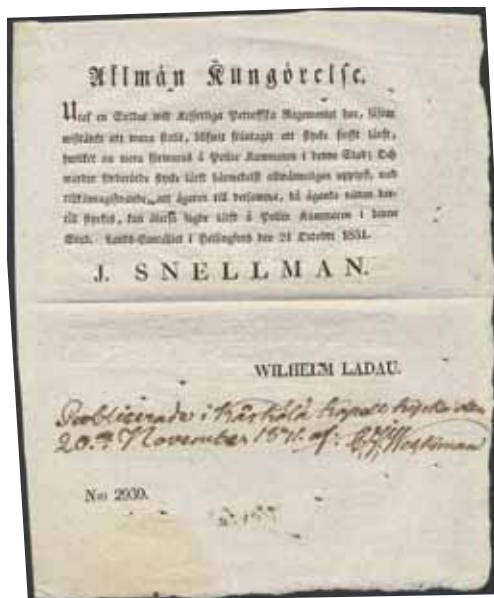 Allmän Kungörelse.
Utaf en Soldat wid Kejserliga Petrofska Regementet har, såsom
misstänkt att wara stulit, blifwit fråntaget ett stycke lärft,
hwilket nu mera förwaras å Police Kammaren i denne Stad; Och
warder förberörde stycke lärft härmedelst allmänneligen upplyst, med
tillkännagifwande, att ägaren till detsamma, då äganderätten der-
till styrkes, kan återfå sagde lärft å Police Kammaren i denne
Stad. Lands-Cancelliet i Helsingfors den 21 October 1831.
J. SNELLMAN.
WILHELM LADAU.
Publicerade i Kärkölä Kapell kyrka den
20.de November 1831. af:
N:o 2939.